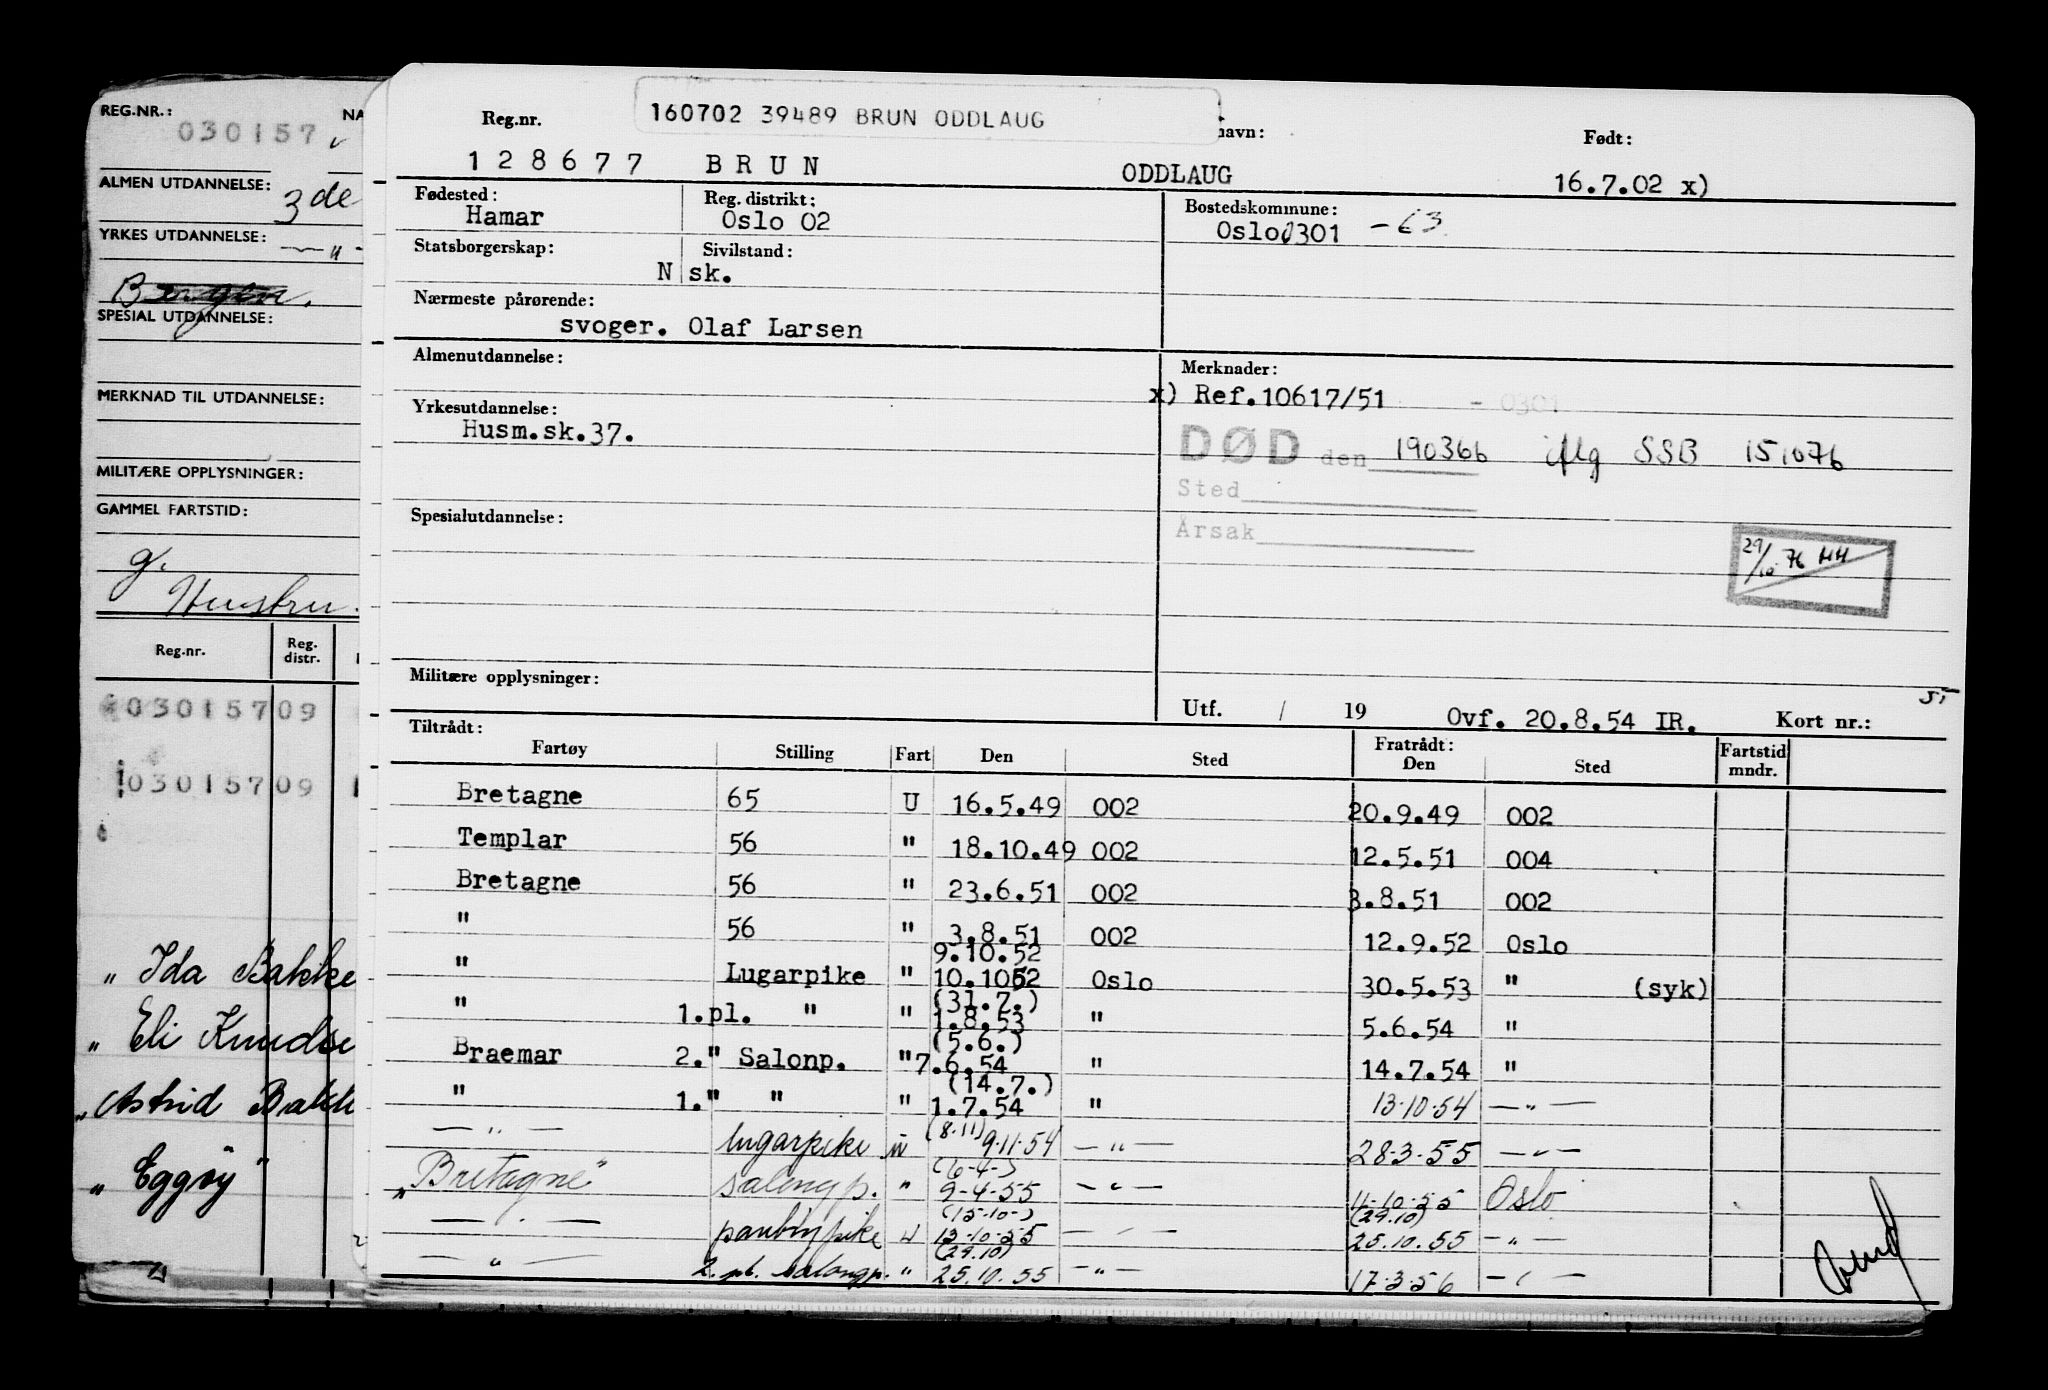 REG.NR.: NA
030157
ALMEN UTDANNELSE: 3de
YRKES UTDANNELSE: — " -
SPESIAL UTDANNELSE:
MERKNAD TIL UTDANNELSE:
MILITÆRE OPPLYSNINGER:
GAMMEL FARTSTID:
g.
Hustru.
Reg.nr. Reg. distr.
030157 09
030157 09
„ Ida Bakke
„ Eli Knudse
„ Astrid Bakk
„ Eggøy"
160702 39489 BRUN ODDLAUG
Reg.nr. navn: Født:
128677 BRUN ODDLAUG 16.7.02 x)
Fødested: Reg. distrikt: Bostedskommune:
Hamar Oslo 02 Oslo 0301 - 63
Statsborgerskap: Sivilstand:
N sk.
Nærmeste pårørende:
svoger. Olaf Larsen
Almenutdannelse: Merknader:
x) Ref.10617/51 - 0301
Yrkesutdannelse:
Husm.sk.37.
DØD den 190366 iflg SSB 151076
Sted
Spesialutdannelse:
Årsak
29/10 76 HH
Militære opplysninger:
Utf. / 19 Ovf. 20.8.54 IR. Kort nr.:
Tiltrådt: Fratrådt:
Fartøy Stilling Fart Den Sted Den Sted Fartstid mndr.
Bretagne 65 U 16.5.49 002 20.9.49 002
Templar 56 " 18.10.49 002 12.5.51 004
Bretagne 56 " 23.6.51 002 3.8.51 002
" 56 " 3.8.51 002 12.9.52 Oslo
9.10.52
" Lugarpike " 10.1052 Oslo 30.5.53 " (syk)
(31.7.)
" 1.pl. " " 1.8.53 " 5.6.54 "
(5.6.)
Braemar 2." Salonp. " 7.6.54 " 14.7.54 "
(14.7.)
" 1." " " 1.7.54 " 13.10.54 — " —
— " — lugarpike u (8.11) 9.11.54 — " — 28.3.55 — " —
(6-4-)
„Bretagne" salongp. " 9-4-55 — " — 4-10-55 Oslo
(15-10-) (29.10)
— " — pantrypike u 13-10-55 — " — 25.10.55 — " —
(29.10)
— " — 2. pl. salongp. " 25.10.55 — " — 17.3.56 — " —